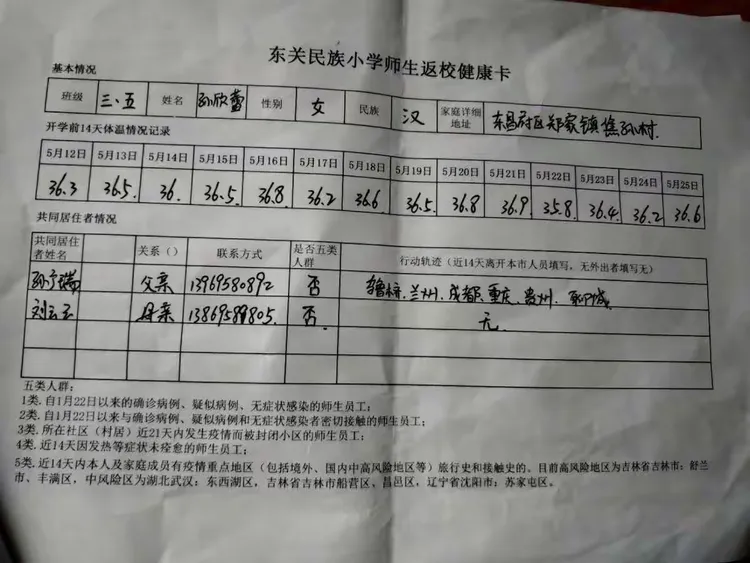 东关民族小学师生返校健康卡
基本情况
班级 三.五 姓名 孙欣蕾 性别 女 民族 汉 家庭详细地址 东昌府区郑家镇焦孙村.
开学前14天体温情况记录
5月12日 5月13日 5月14日 5月15日 5月16日 5月17日 5月18日 5月19日 5月20日 5月21日 5月22日 5月23日 5月24日 5月25日
36.3 36.5 36. 36.5 36.8 36.2 36.6 36.5 36.8 36.9 35.8 36.4 36.2 36.6
共同居住者情况
共同居住者姓名 关系（） 联系方式 是否五类人群 行动轨迹（近14天离开本市人员填写。无外出者填写无）
父亲 13969580892 否 兰州.成都.重庆.贵州.聊城
刘云云 母亲 否 无
五类人群：
1类. 自1月22日以来的确诊病例、疑似病例、无症状感染的师生员工；
2类. 自1月22日以来与确诊病例、疑似病例和无症状感染者密切接触的师生员工；
3类. 所在社区（村居）近21天内发生疫情而被封闭小区的师生员工；
4类. 近14天因发热等症状未痊愈的师生员工；
5类. 近14天内本人及家庭成员有疫情重点地区（包括境外、国内中高风险地区等）旅行史和接触史的。目前高风险地区为吉林省吉林市：舒兰
市、丰满区，中风险区为湖北武汉：东西湖区，吉林省吉林市船营区、昌邑区，辽宁省沈阳市：苏家屯区。